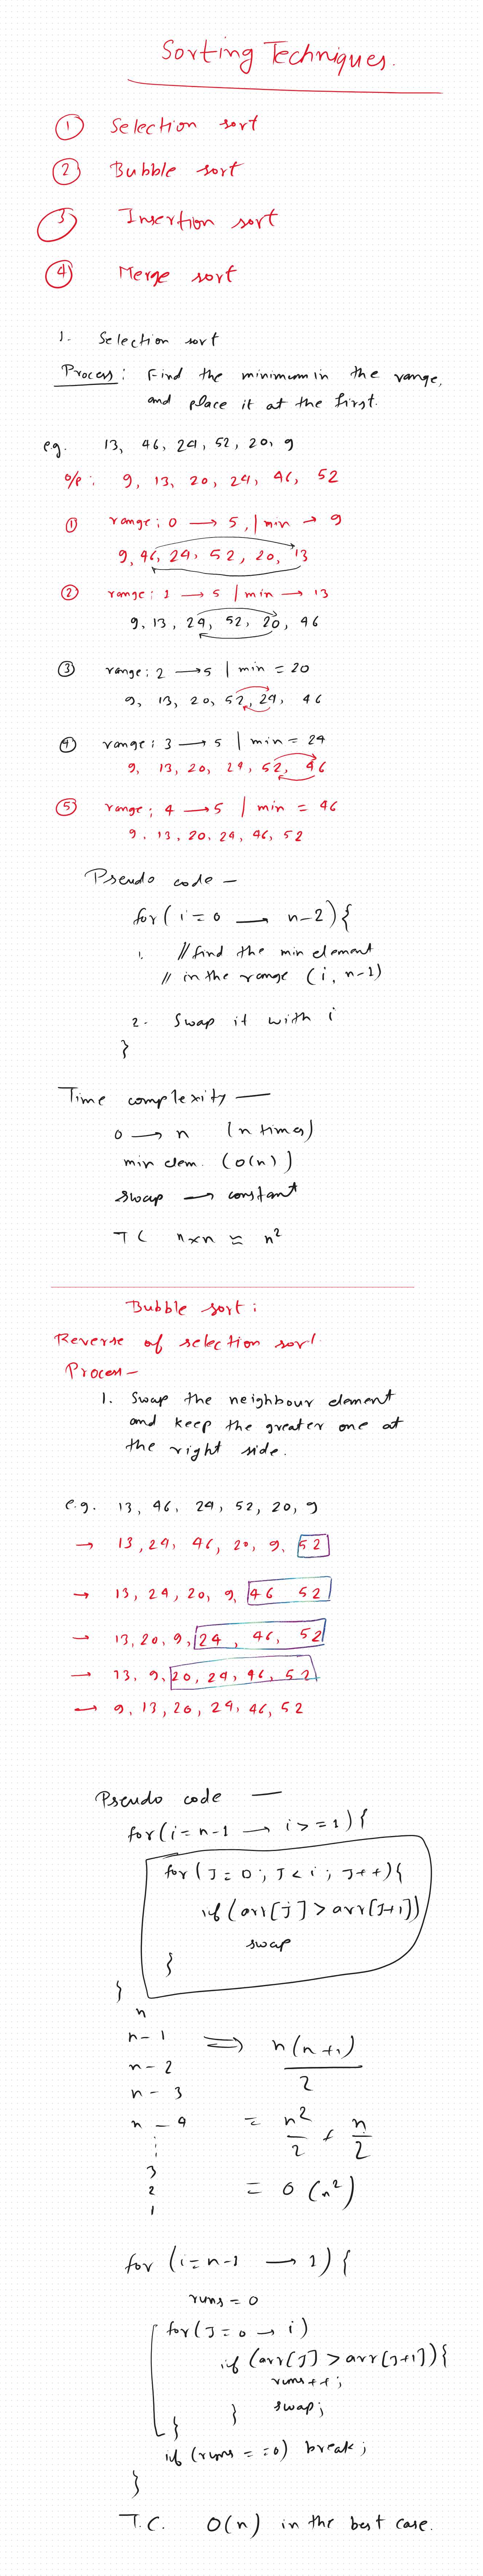 Sorting Techniques.
① Selection sort
② Bubble sort
③ Insertion sort
④ Merge sort
1. Selection sort
Process: Find the minimum in the range,
and place it at the first.
e.g. 13, 46, 24, 52, 20, 9
o/p: 9, 13, 20, 24, 46, 52
① range: 0 → 5, | min → 9
9, 46, 24, 52, 20, 13
② range: 1 → 5 | min → 13
9, 13, 24, 52, 20, 46
③ range: 2 → 5 | min = 20
9, 13, 20, 52, 24, 46
④ range: 3 → 5 | min = 24
9, 13, 20, 24, 52, 46
⑤ range: 4 → 5 | min = 46
9, 13, 20, 24, 46, 52
Pseudo code —
for (i = 0 → n-2) {
1. // find the min element
// in the range (i, n-1)
2. Swap it with i
}
Time complexity —
0 → n (n times)
min elem. (O(n))
swap → constant
TC n×n ≈ n²
Bubble sort:
Reverse of selection sort.
Process —
1. Swap the neighbour element
and keep the greater one at
the right side.
e.g. 13, 46, 24, 52, 20, 9
→ 13, 24, 46, 20, 9, 52
→ 13, 24, 20, 9, 46 52
→ 13, 20, 9, 24, 46, 52
→ 13, 9, 20, 24, 46, 52
→ 9, 13, 20, 24, 46, 52
Pseudo code —
for (i = n-1 → i >= 1) {
for (J = 0; J < i; J++) {
if (arr[j] > arr[J+1])
swap
}
}
n
n-1 ⇒ n(n+1)/2
n-2
n-3
n-4 = n²/2 + n/2
⋮
3
2 = O(n²)
1
for (i = n-1 → 1) {
runs = 0
for (J = 0 → i)
if (arr[J] > arr[J+1]) {
runs++;
swap;
}
}
if (runs == 0) break;
}
T.C. O(n) in the best case.